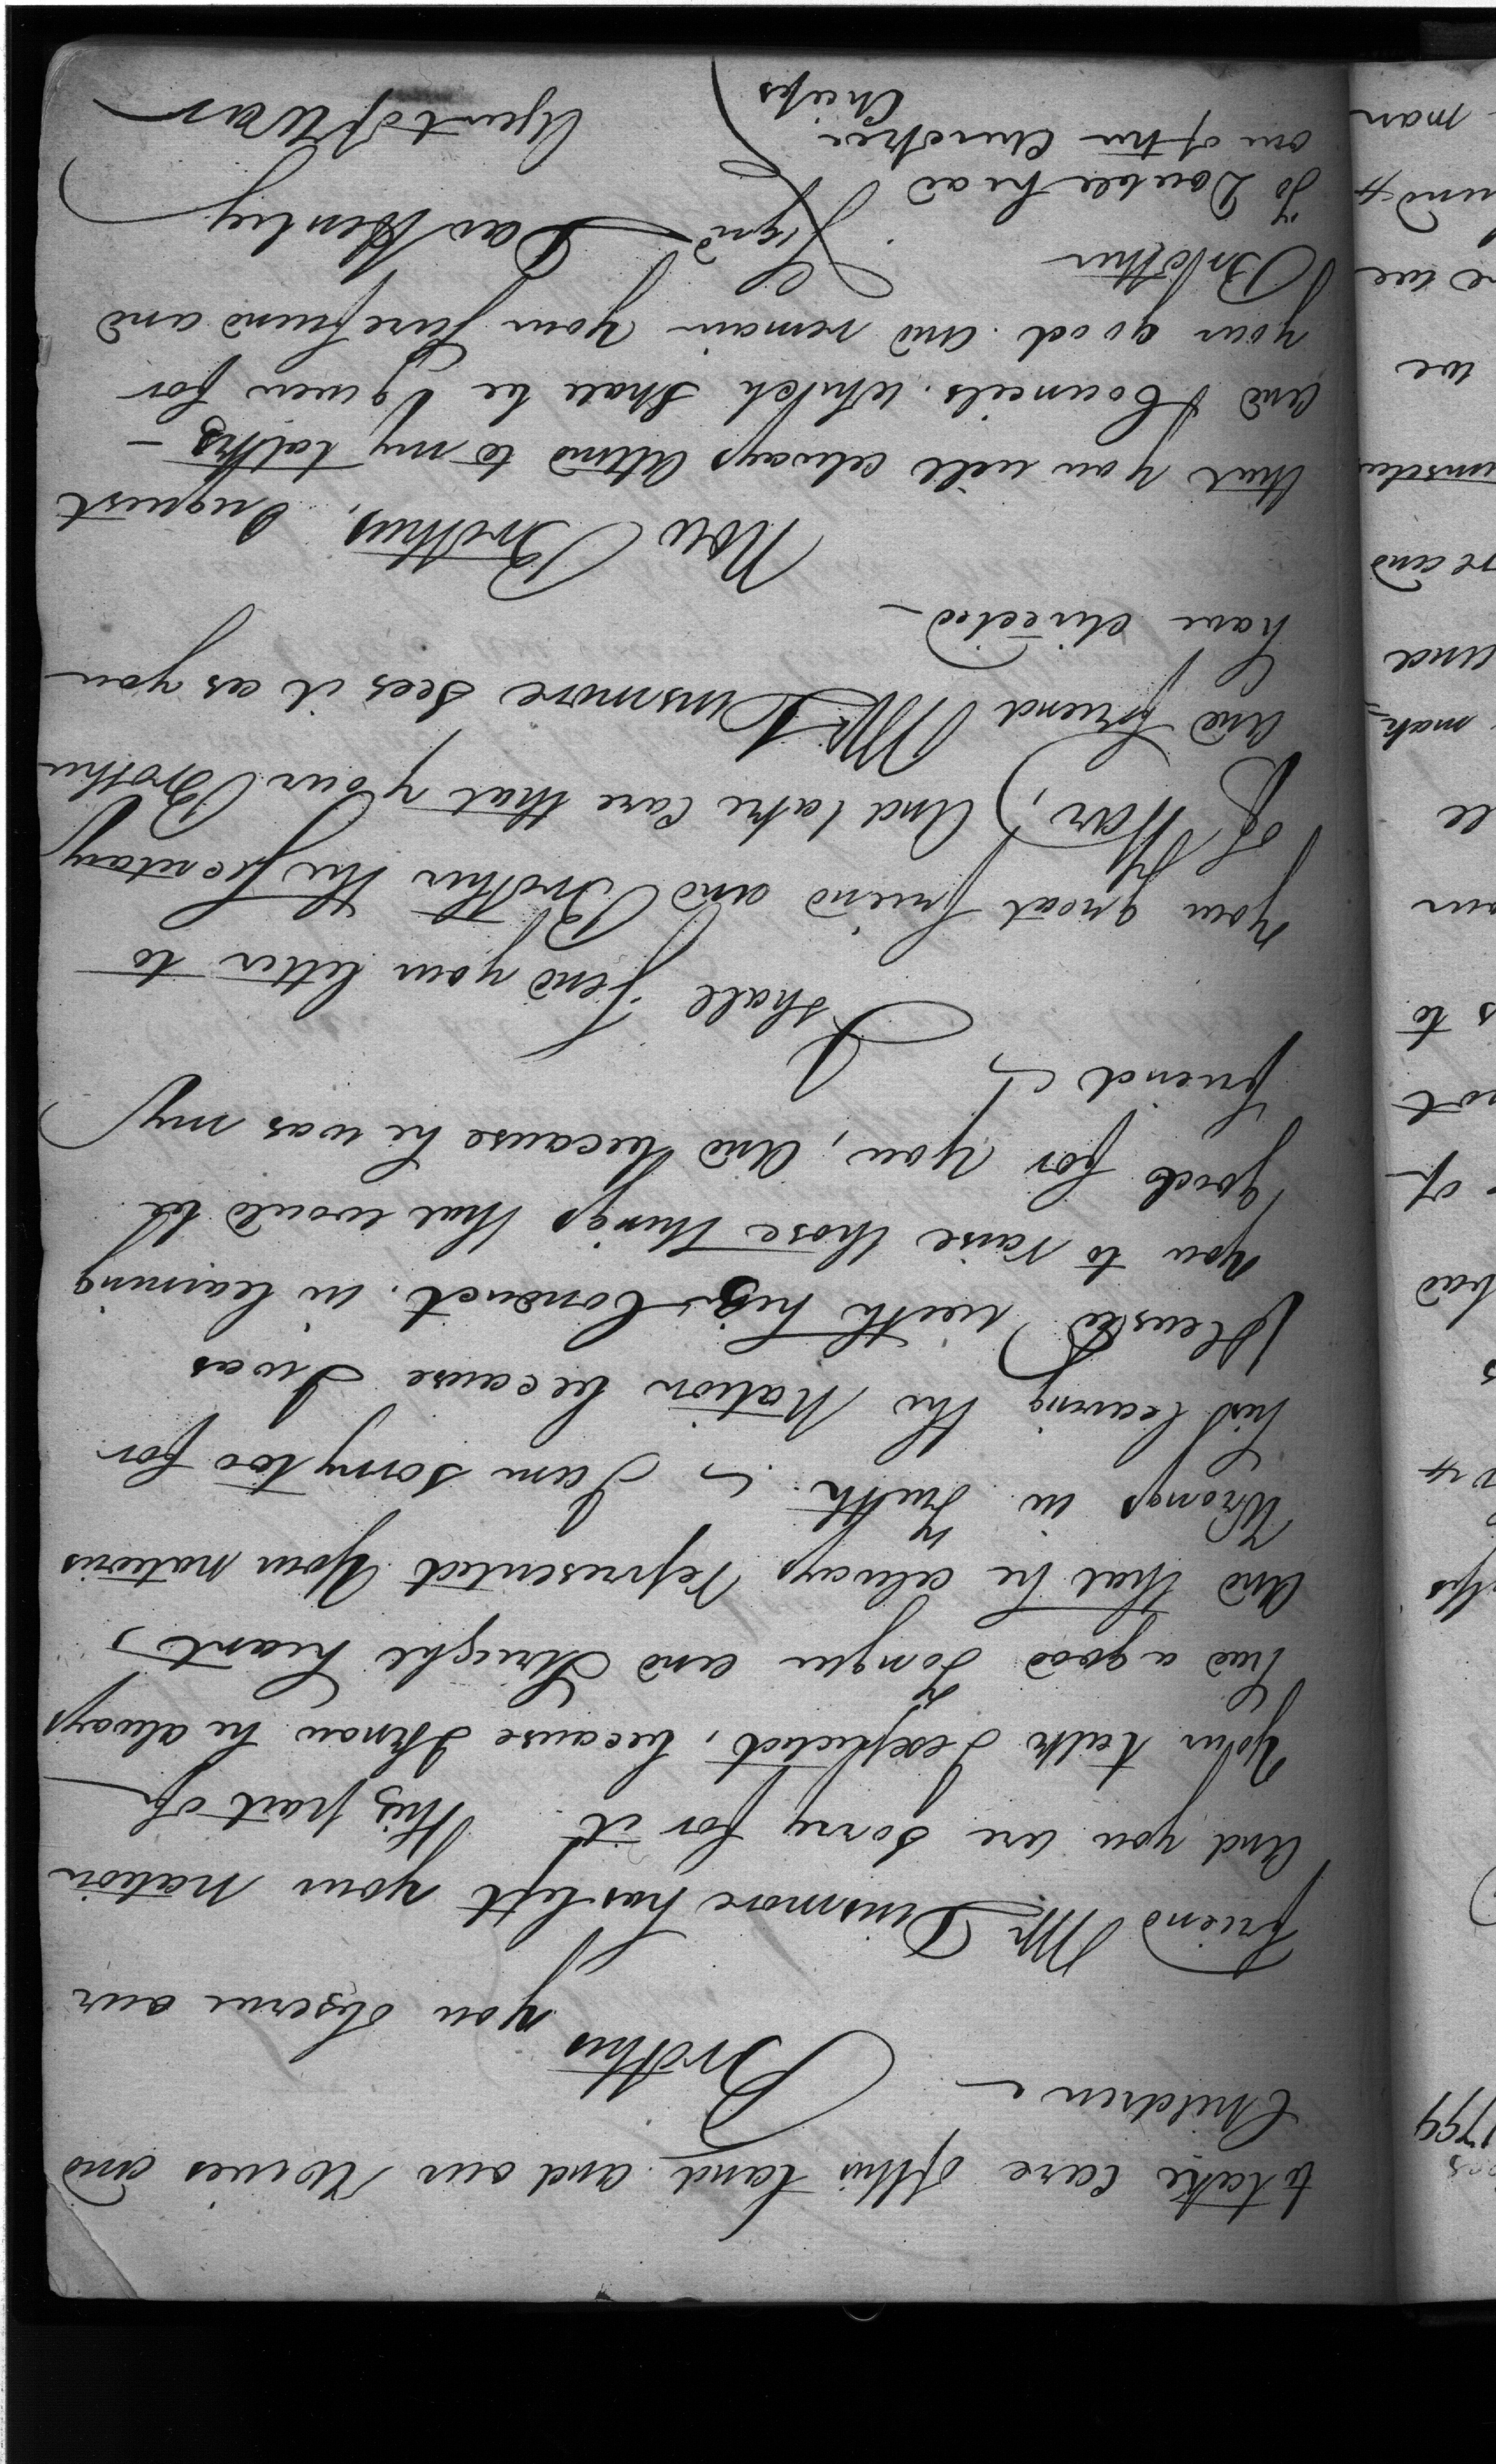 to take care of this land and our Wives and
Children
Brothers
you observe our
friend Mr Dinsmore has left your nation
and you are sorry for it. This part of
Your talk I expected, because I know he always
had a good Tongue and Straight heart,
and that he always represented Your nations
Wrongs in Truth. I am sorry too for
his leaving the Nation because I was
pleased with his Conduct. in learning
you to raise those things that would be
good for you, and because he was my
friend
I shall Send your letter to
Your great friend and Brother the Secretary
of War, and take Care that your Brother
and friend Mr Dinsmore Sees it as you
have directed
Now Brothers, I request
that you will always attend to my talks
and Councils. which Shall be given for
your good. and remain your Sure friend and
Brother
Signd Dav Henley
To Double head
one of the Cherokee
Chiefs
Agent of War
1799
s
of
not
s to
our
we
man